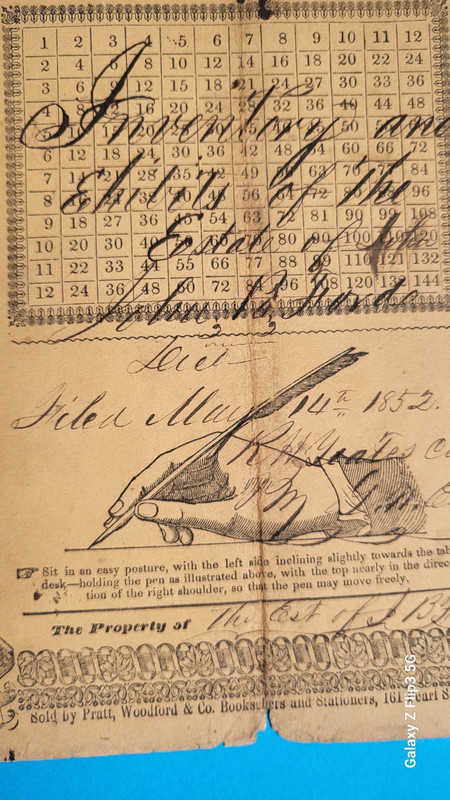 1 2 3 4 5 6 7 8 9 10 11 12
2 4 6 8 10 12 14 16 18 20 22 24
3 6 9 12 15 18 21 24 27 30 33 36
4 8 12 16 20 24 28 32 36 40 44 48
Inventory and
5 10 15 20 25 30 35 40 45 50
6 12 18 24 30 36 42 48 54 60 66 72
7 14 21 28 35 42 49 56 63 70 77 84
of the
8 40 48 56 64 72 80 88 96
9 18 27 36 45 54 63 72 81 90 99 108
Estate of
10 20 30 40 50 60 70 80 90 100 110 120
11 22 33 44 55 66 77 88 99 110 121 132
12 24 36 48 60 72 84 96 108 120 132 144
Decd
Filed May 14th 1852.
Yeates
Sit in an easy posture, with the left side inclining slightly towards the tab
desk—holding the pen as illustrated above, with the top nearly in the direc
tion of the right shoulder, so that the pen may move freely.
The Property of The Est of J B
Sold by Pratt, Woodford & Co. Booksellers and Stationers, 161 Pearl S
Galaxy Z Flip3 5G